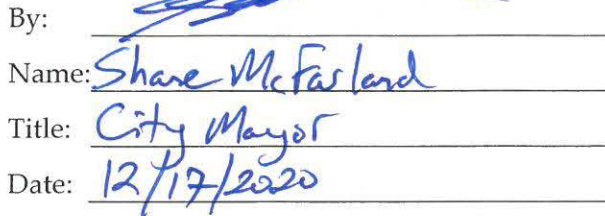 By:
Name: Shane McFarland
Title: City Mayor
Date: 12/17/2020